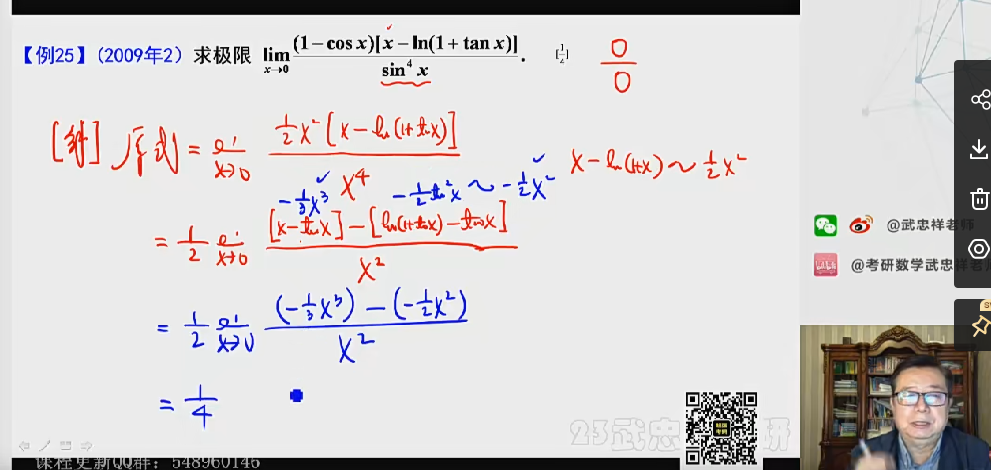 【例25】(2009年2) 求极限 lim x→0 (1−cos x)[x−ln(1+tan x)] / sin⁴ x . [1/2] 0/0
[解] 原式 = lim x→0 1/2 x² [x−ln(1+tan x)] / x⁴
x−ln(1+x) ~ 1/2 x²
−1/3 x³ −1/2 tan² x ~ −1/2 x²
= 1/2 lim x→0 [x−tan x] − [ln(1+tan x) − tan x] / x²
= 1/2 lim x→0 (−1/3 x³) − (−1/2 x²) / x²
= 1/4
@武忠祥老师
@考研数学武忠祥老
23武忠 研
课程更新QQ群：548960146